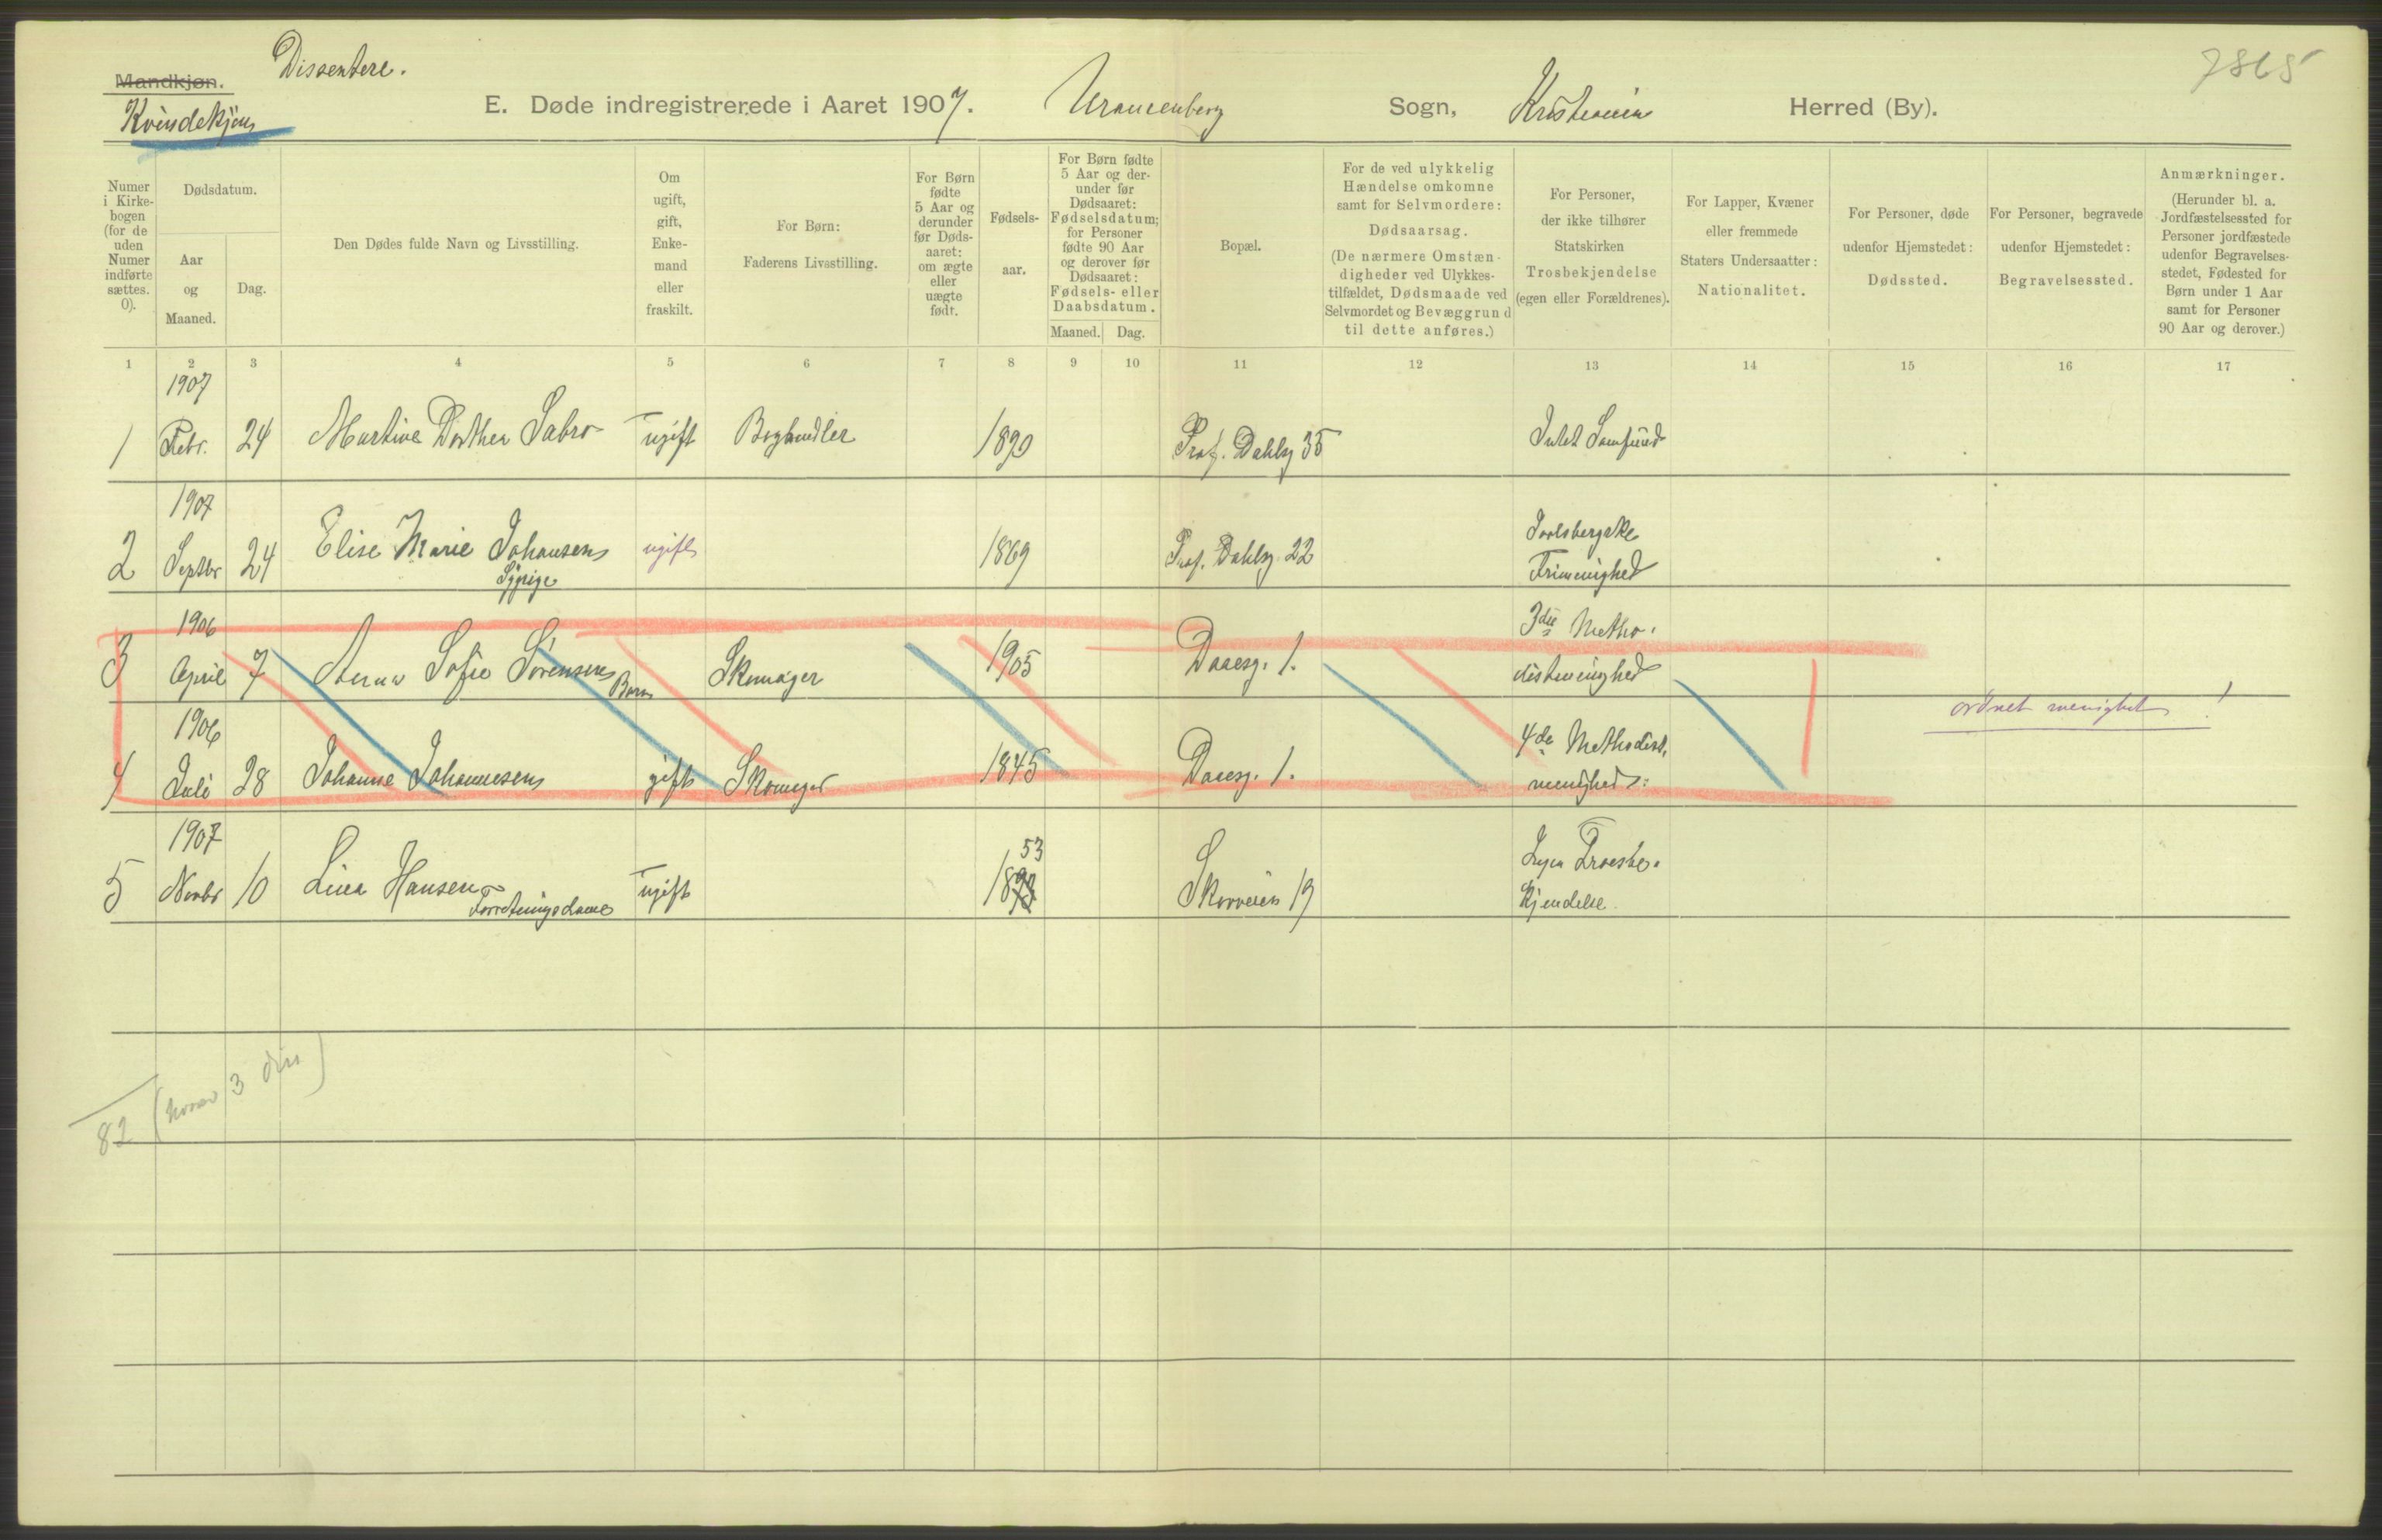 Dissentere.
7865
Mandkjøn.
Kvindekjøn
E. Døde indregistrerede i Aaret 1907. Uranienborg Sogn, Kristiania Herred (By).
Numer i Kirkebogen (for de uden Numer indførte sættes. 0).
Dødsdatum.
Aar og Maaned.
Dag.
Den Dødes fulde Navn og Livsstilling.
Om ugift, gift, Enkemand eller fraskilt.
For Børn: Faderens Livsstilling.
For Børn fødte 5 Aar og derunder før Dødsaaret: om ægte eller uægte født.
Fødselsaar.
For Børn fødte 5 Aar og derunder før Dødsaaret: Fødselsdatum; for Personer fødte 90 Aar og derover før Dødsaaret: Fødsels- eller Daabsdatum.
Maaned. Dag.
Bopæl.
For de ved ulykkelig Hændelse omkomne samt for Selvmordere: Dødsaarsag. (De nærmere Omstændigheder ved Ulykkestilfældet, Dødsmaade ved Selvmordet og Bevæggrund til dette anføres.)
For Personer, der ikke tilhører Statskirken Trosbekjendelse (egen eller Forældrenes).
For Lapper, Kvæner eller fremmede Staters Undersaatter: Nationalitet.
For Personer, døde udenfor Hjemstedet: Dødssted.
For Personer, begravede udenfor Hjemstedet: Begravelsessted.
Anmærkninger. (Herunder bl. a. Jordfæstelsessted for Personer jordfæstede udenfor Begravelsesstedet, Fødested for Børn under 1 Aar samt for Personer 90 Aar og derover.)
1 2 3 4 5 6 7 8 9 10 11 12 13 14 15 16 17
1907
1 Febr. 24 Martine Dorthea Sabro ugift Boghandler 1890 Prof. Dahlsg 35 Intet Samfund
1907
2 Septbr 24 Elise Marie Johansen ugift 1869 Prof. Dahlsg. 22 Jarlsbergske
Sypige Frimenighed
1906 3die Metho-
3 April 7 Anna Sofie Sørensen Barn Skomager 1905 Daaesg. 1. distmenighed
ordnet menighet !
1906
4 Juli 28 Johanne Johannesen gift Skomager 1845 Daaesg. 1. 4de Methodist.
menighed:
1907 53
5 Novbr 10 Lina Hansen ugift 1893 Skovveien 19 Ingen Troesbe-
Forretningsdame kjendelse.
82 (hvorav 3 diss)